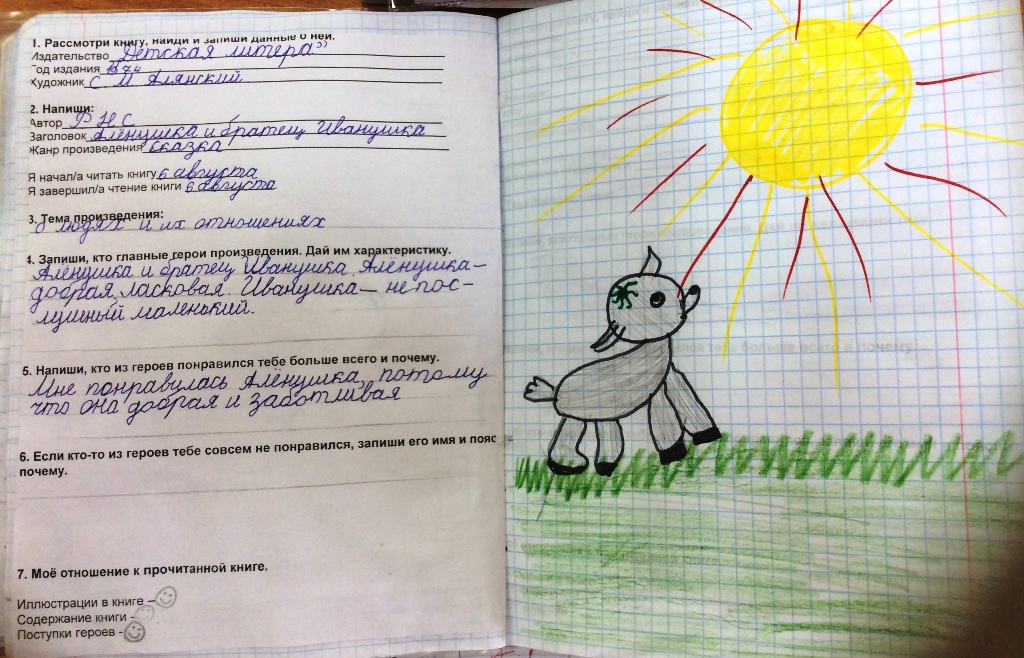 1. Рассмотри книгу, найди и запиши данные о ней.
Издательство Детская литера"
Год издания
Художник С М Алянский
2. Напиши:
Автор Р Н С
Заголовок Алёнушка и братец Иванушка
Жанр произведения сказка
Я начал/а читать книгу 6 августа
Я завершил/а чтение книги 6 августа
3. Тема произведения:
О людях и их отношениях
4. Запиши, кто главные герои произведения. Дай им характеристику.
Алёнушка и братец Иванушка. Алёнушка–
добрая, ласковая. Иванушка – непос-
лушный маленький.
5. Напиши, кто из героев понравился тебе больше всего и почему.
Мне понравилась Алёнушка, потому
что она добрая и заботливая
6. Если кто-то из героев тебе совсем не понравился, запиши его имя и пояс
почему.
7. Моё отношение к прочитанной книге.
Иллюстрации в книге –
Содержание книги -
Поступки героев -